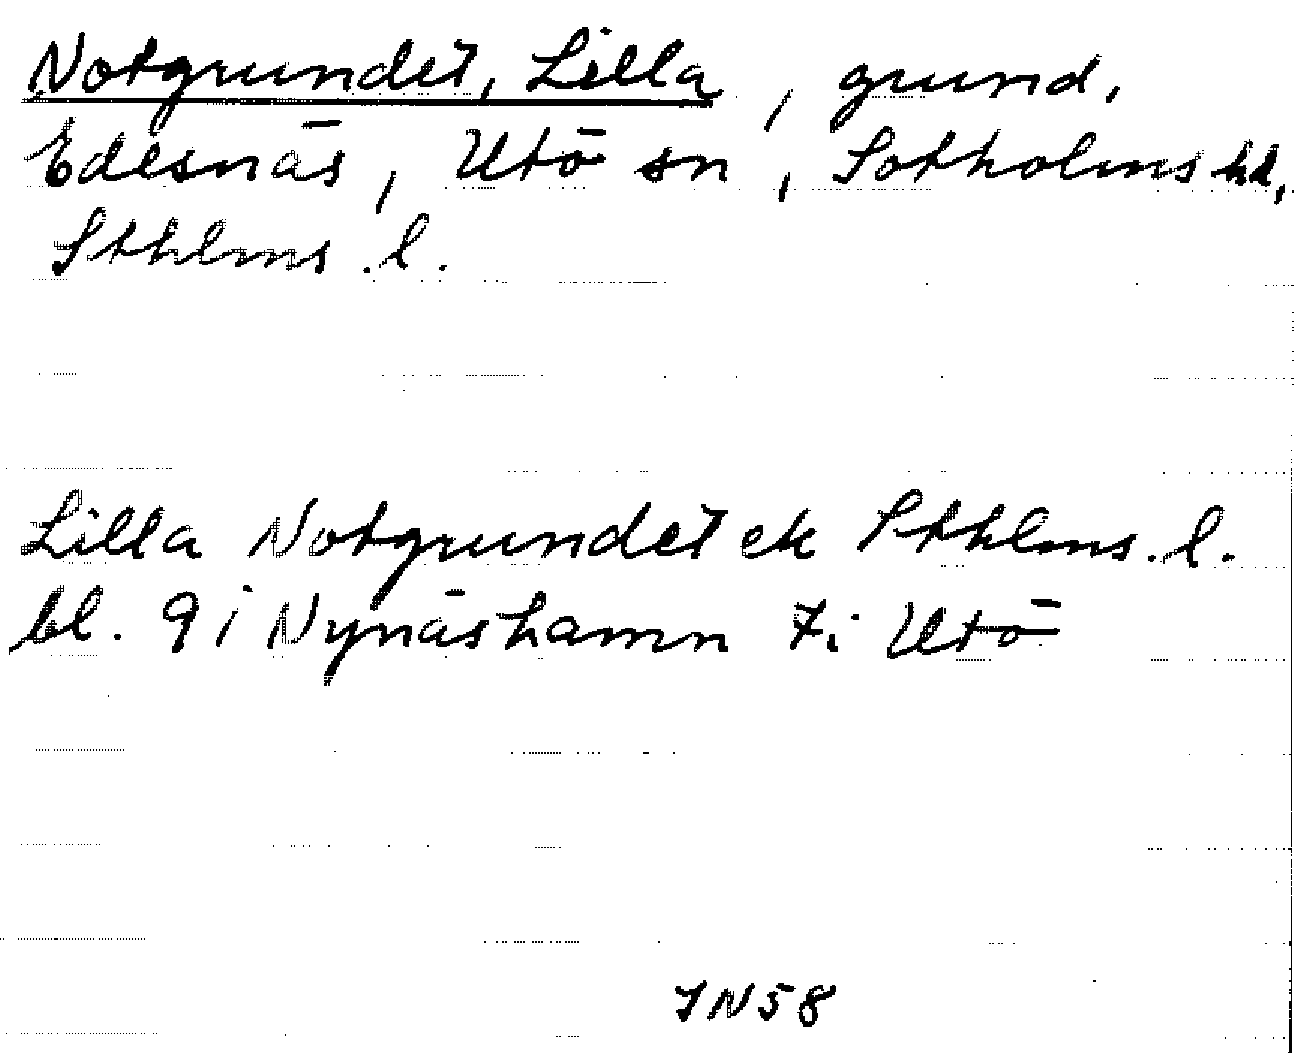 Notgrundet, Lilla, grund,
Edesnäs, Utö sn, Sotholms hd,
Sthlms. l.
Lilla Notgrundet ek Sthlms. l.
bl. 9 i Nynäshamn t. i Utö
IN58